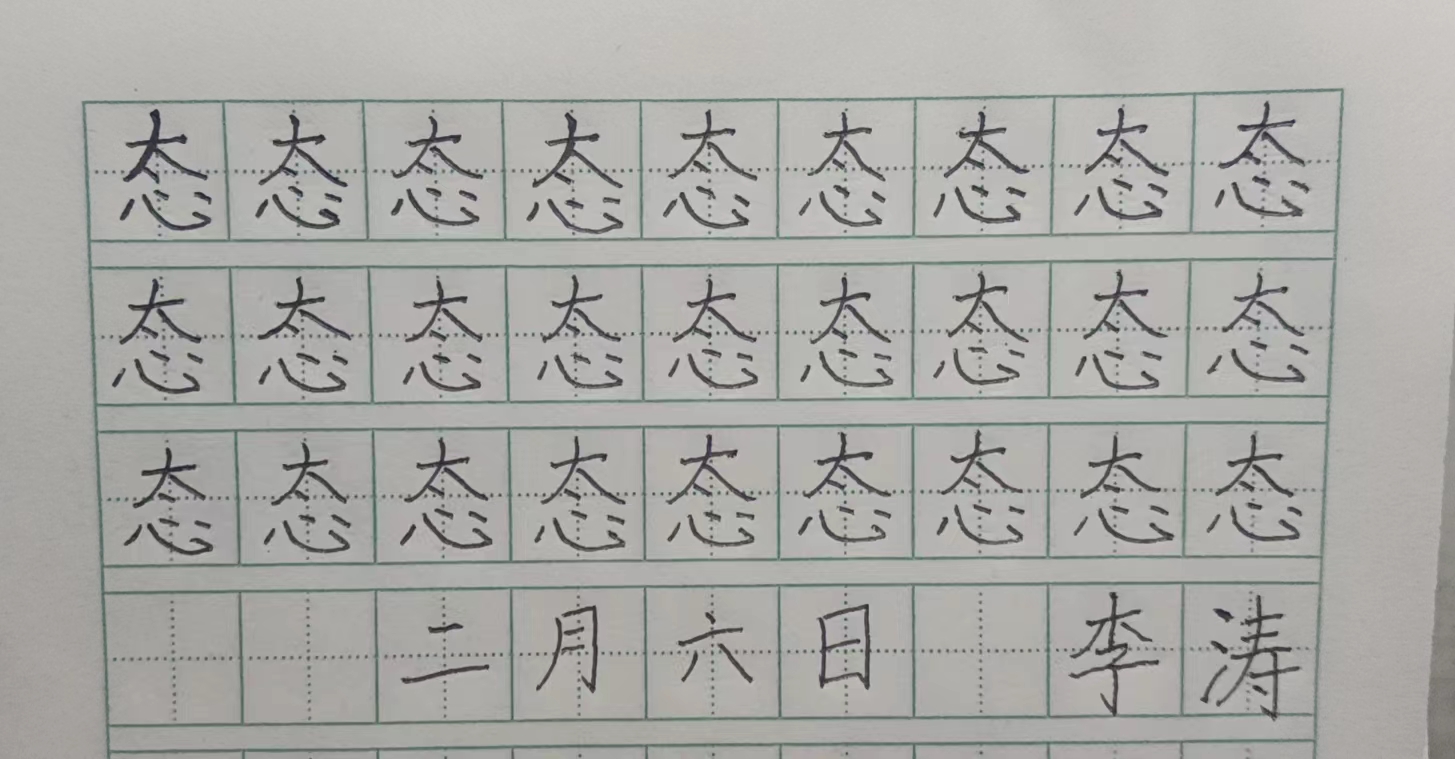 态态态态态态态态态
态态态态态态态态态
态态态态态态态态态
二月六日 李涛